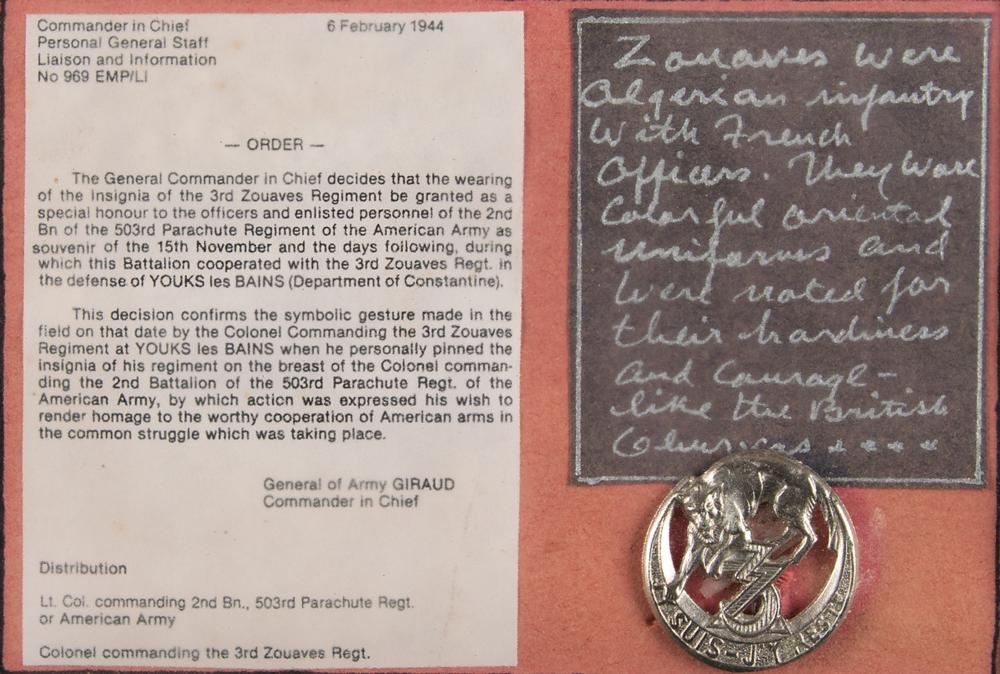 Commander in Chief 6 February 1944
Personal General Staff
Liaison and Information
No 969 EMP/LI
— ORDER —
The General Commander in Chief decides that the wearing
of the Insignia of the 3rd Zouaves Regiment be granted as a
special honour to the officers and enlisted personnel of the 2nd
Bn of the 503rd Parachute Regiment of the American Army as
souvenir of the 15th November and the days following, during
which this Battalion cooperated with the 3rd Zouaves Regt. in
the defense of YOUKS les BAINS (Department of Constantine).
This decision confirms the symbolic gesture made in the
field on that date by the Colonel Commanding the 3rd Zouaves
Regiment at YOUKS les BAINS when he personally pinned the
insignia of his regiment on the breast of the Colonel comman-
ding the 2nd Battalion of the 503rd Parachute Regt. of the
American Army, by which action was expressed his wish to
render homage to the worthy cooperation of American arms in
the common struggle which was taking place.
General of Army GIRAUD
Commander in Chief
Distribution
Lt. Col. commanding 2nd Bn., 503rd Parachute Regt.
or American Army
Colonel commanding the 3rd Zouaves Regt.
Zouaves were
Algerian infantry
with French
Officers. They wore
Colorful oriental
uniforms and
were noted for
their hardiness
and Courage—
like the British
3
J'Y SUIS-J'Y RESTE